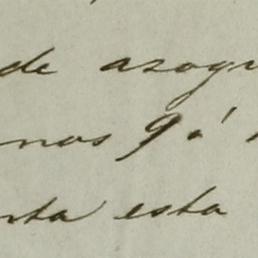 de azogu
nos 9 á
rta esta